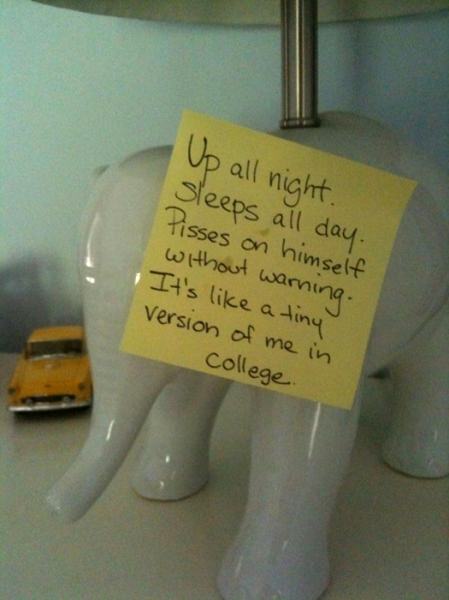 Up all night.
Sleeps all day.
Pisses on himself
without warning.
It's like a tiny
version of me in
college.